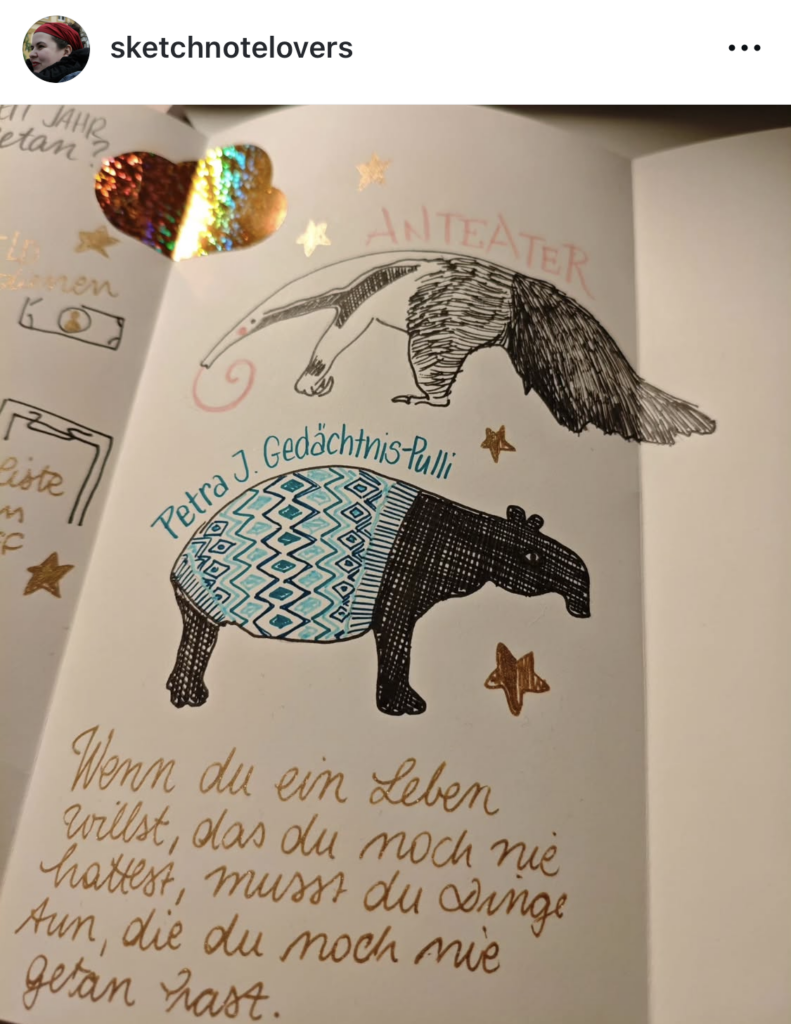 sketchnotelovers
JAHR
getan?
ANTEATER
Petra J. Gedächtnis-Pulli
Liste
Wenn du ein Leben
willst, das du noch nie
hattest, musst du Dinge
tun, die du noch nie
getan hast.